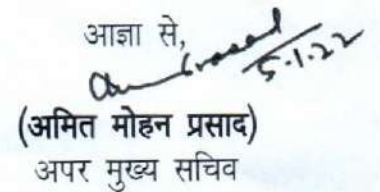 आज्ञा से,
5.1.22
(अमित मोहन प्रसाद)
अपर मुख्य सचिव